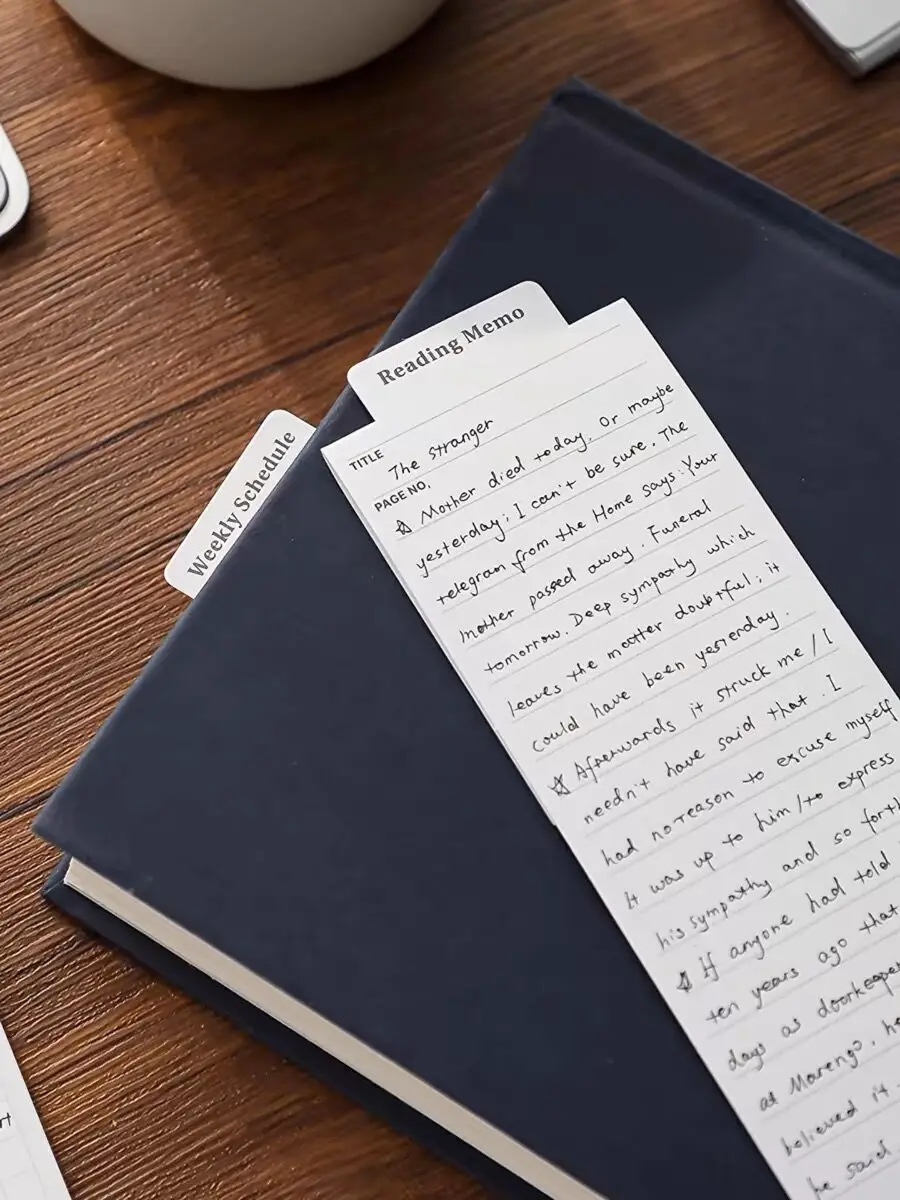 Reading Memo
TITLE The Stranger
PAGE NO.
☆ Mother died today. Or maybe
yesterday; I can't be sure. The
telegram from the Home says: Your
mother passed away. Funeral
tomorrow. Deep sympathy which
leaves the matter doubtful; it
could have been yesterday.
☆ Afterwards it struck me / I
needn't have said that. I
had no reason to excuse myself
It was up to him / to express
his sympathy and so forth
☆ If anyone had told
ten years ago that
days as doorkeeper
at Marengo, he
believed it.
he said
Weekly Schedule